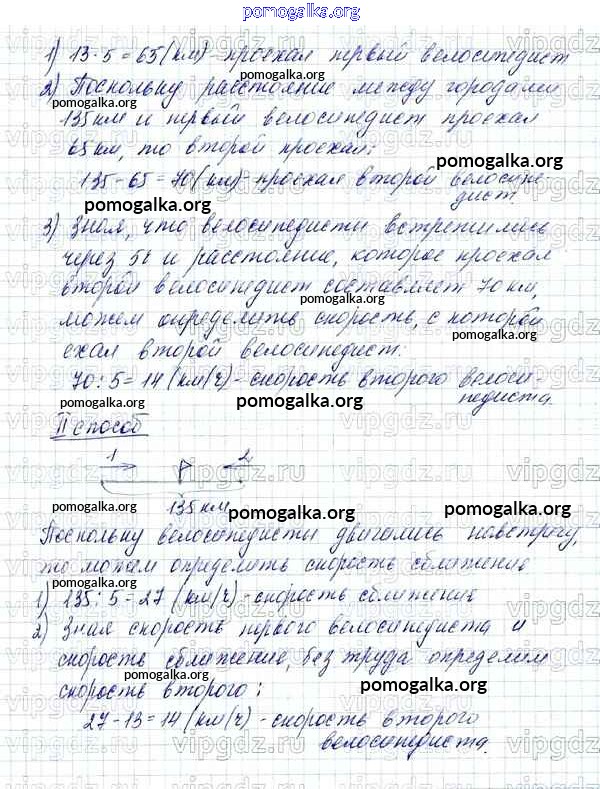 pomogalka.org
1) 13·5=65(км)-проехал первый велосипедист
2) Поскольку расстояние между городами
pomogalka.org pomogalka.org
135км и первый велосипедист проехал
65км, то второй проехал:
pomogalka.org
135-65=70(км)-проехал второй велосипе-
дист
pomogalka.org pomogalka.org
3) Зная, что велосипедисты встретились
через 5ч и расстояние, которое проехал
второй велосипедист составляет 70 км,
pomogalka.org
можем определить скорость, с которой
pomogalka.org
ехал второй велосипедист:
70:5=14(км/ч)-скорость второго велоси-
педиста.
pomogalka.org pomogalka.org pomogalka.org
II способ
vipgdz.ru
1 2
135км
pomogalka.org pomogalka.org pomogalka.org
Поскольку велосипедисты двигались навстречу,
то можем определить скорость сближение
pomogalka.org pomogalka.org
1) 135:5=27 (км/ч)-скорость сближение
2) Зная скорость первого велосипедиста и
скорость сближение, без труда определим
скорость второго:
pomogalka.org
pomogalka.org
27-13=14(км/ч)-скорость второго
велосипедиста.
pomogalka.org